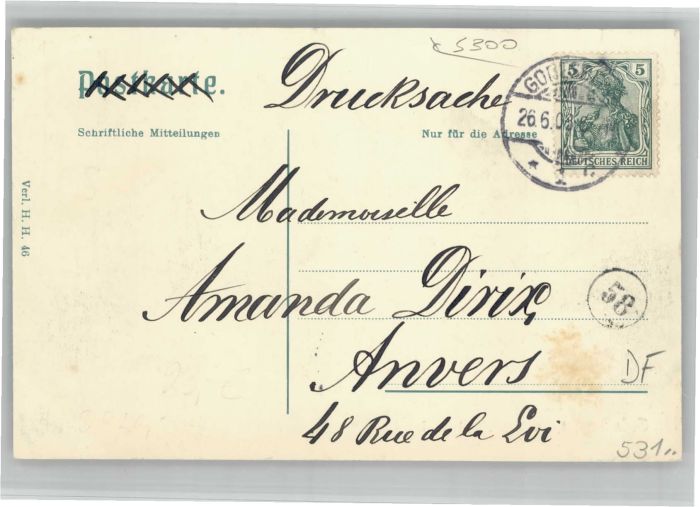 5300
Postkarte.
Drucksache
Schriftliche Mitteilungen
Nur für die Adresse
5 5
26.6.0
DEUTSCHES REICH
Verl. H. H. 46
Mademoiselle
Amanda Dirix,
58
Anvers
DF
48 Rue de la Loi
531..